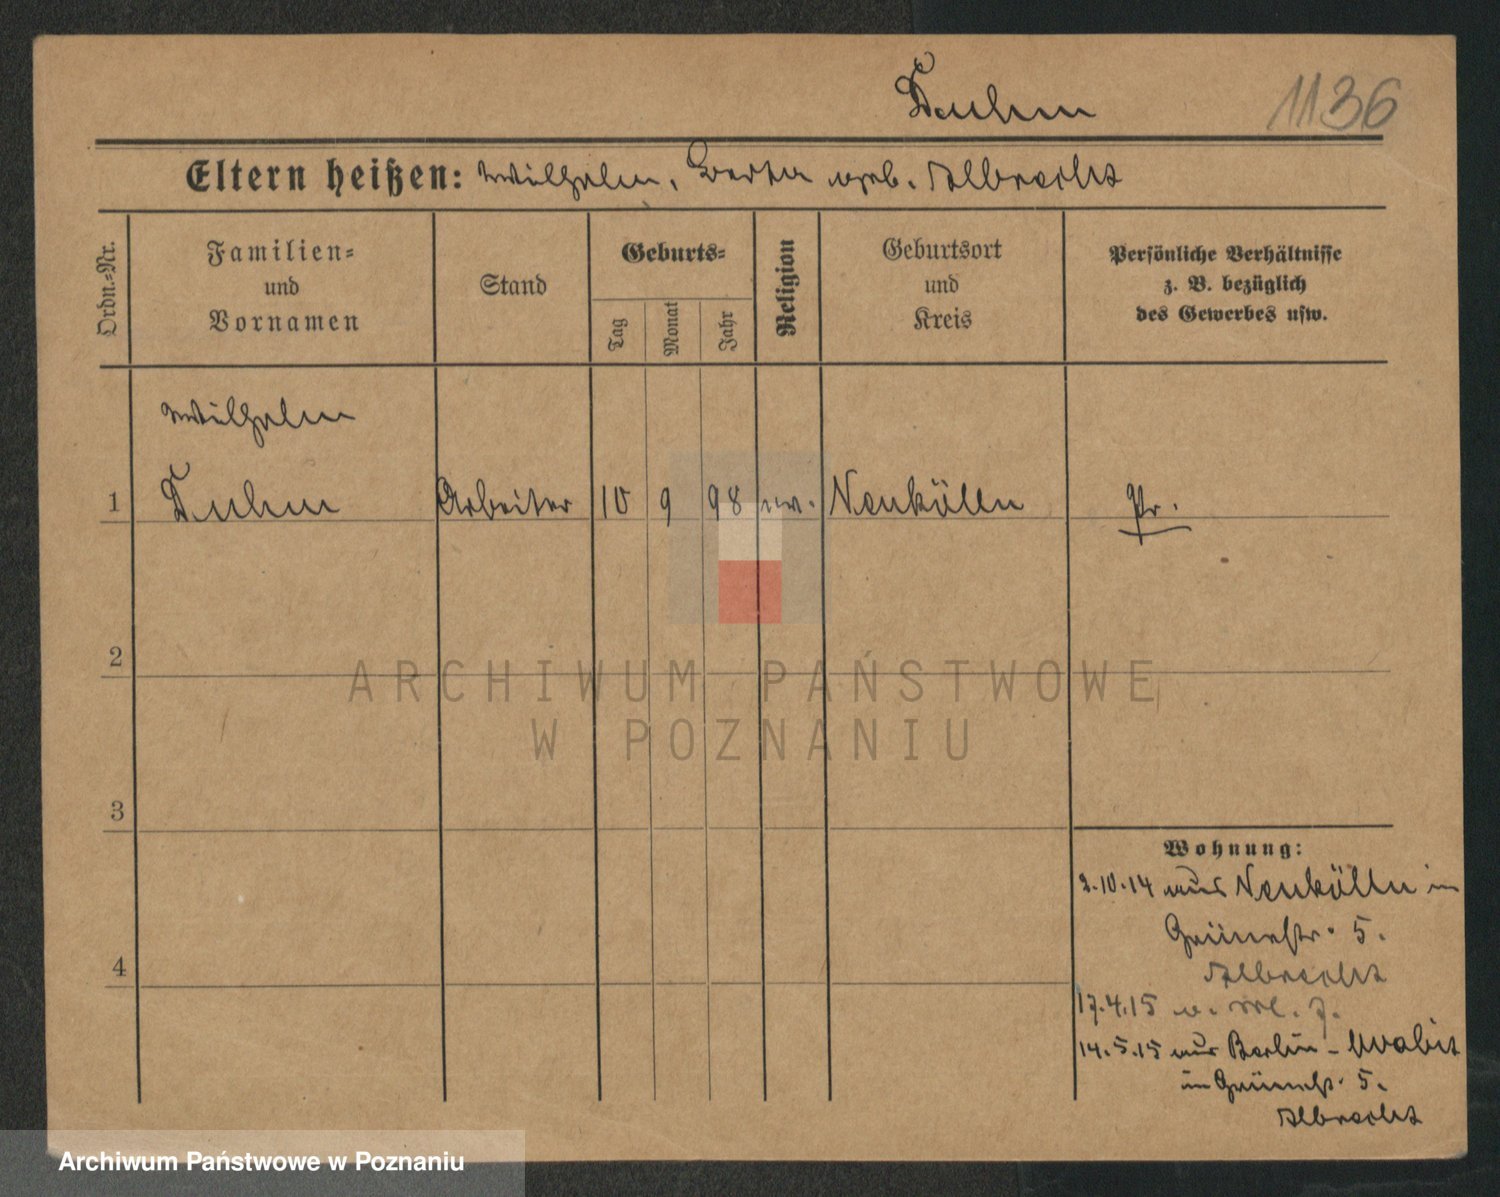 Duhm
1136
Eltern heißen: Wilhelm, Berta geb. Albrecht
Ordn.-Nr.
Familien-
und
Vornamen
Stand
Geburts-
Tag
Monat
Jahr
Religion
Geburtsort
und
Kreis
Persönliche Verhältnisse
z. B. bezüglich
des Gewerbes usw.
Wilhelm
1 Duhm Arbeiter 10 9 98 ev. Neukölln Pr.
2
3
4
Wohnung:
2.10.14 aus Neukölln in
Grünestr. 5.
Albrecht
17.4.15
14.5.15 aus Berlin-Moabit
in Grünestr. 5.
Albrecht
ARCHIWUM PAŃSTWOWE
W POZNANIU
Archiwum Państwowe w Poznaniu